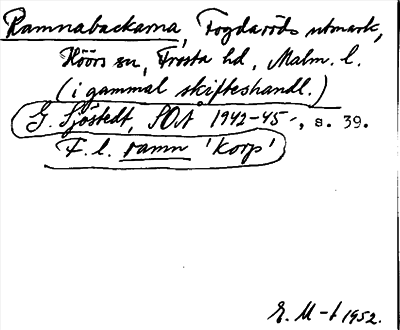 Ramnabackarna, Fogdaröds utmark,
Höörs sn, Frosta hd, Malm. l.
(i gammal skifteshandl.)
G. Sjöstedt, SOÅ 1942-45, s. 39.
F. l. ramn 'korp'
E. M-t 1952.